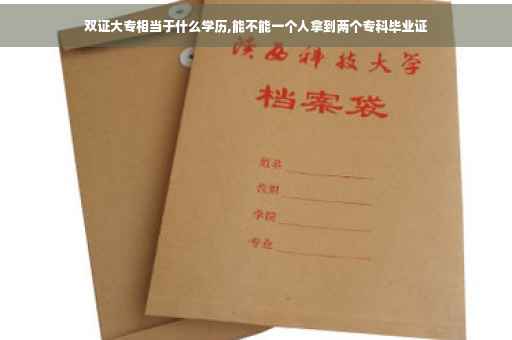 双证大专相当于什么学历,能不能一个人拿到两个专科毕业证
陕西科技大学
档案袋
姓名
学院
专业